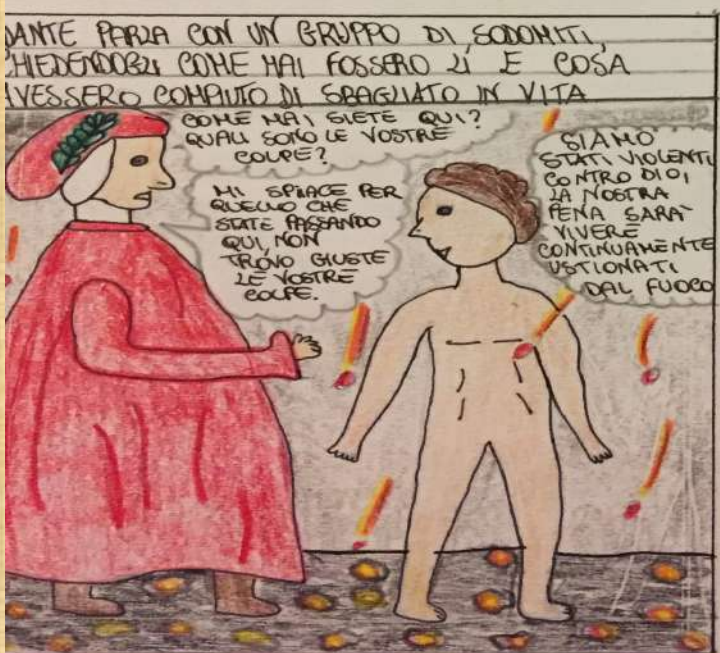 DANTE PARLA CON UN GRUPPO DI SODOMITI,
CHIEDENDOGLI COME MAI FOSSERO LÌ E COSA
AVESSERO COMPIUTO DI SBAGLIATO IN VITA
COME MAI SIETE QUI?
QUALI SONO LE VOSTRE
COLPE?
MI SPIACE PER
QUELLO CHE
STATE PASSANDO
QUI, NON
TROVO GIUSTE
LE VOSTRE
COLPE.
SIAMO
STATI VIOLENTI
CONTRO DIO,
LA NOSTRA
PENA SARÀ
VIVERE
CONTINUAMENTE
USTIONATI
DAL FUOCO